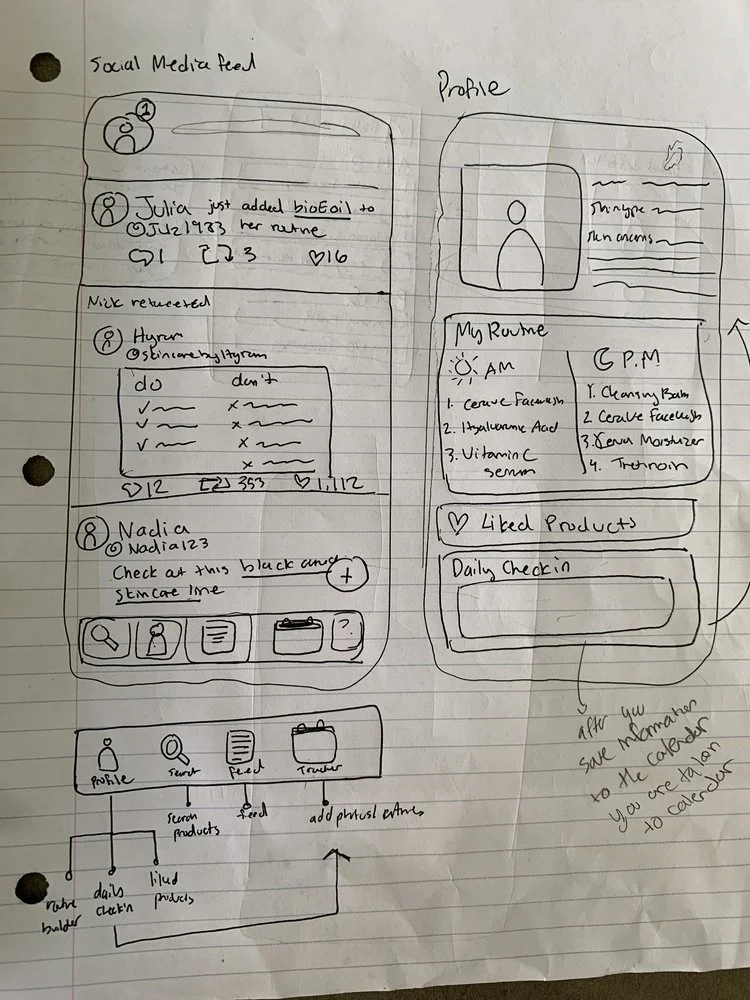 Social Media feed
1
Julia just added bioEoil to
@Julz1983 her routne
1 3 16
Nick retweeted
Hyram
@skincarebyHyram
do don't
12 353 1,112
Nadia
@Nadia123
Check at this black owned
skincare line
+
?
Profile
Skintype
Skin concerns
My Routine
AM
1. Cerave Facewash
2. Hyaluronic Acid
3. Vitamin C
serum
P.M
1. Cleansing Balm
2 Cerave Facewash
3. Moisturizer
4. Tretinoin
Liked Products
Daily Checkin
after you
save information
to the calendar
you are taken
to calendar
Profile
Search
Feed
Tracker
search
products
feed
add photos/ entries
routine
builder
daily
checkin
liked
products